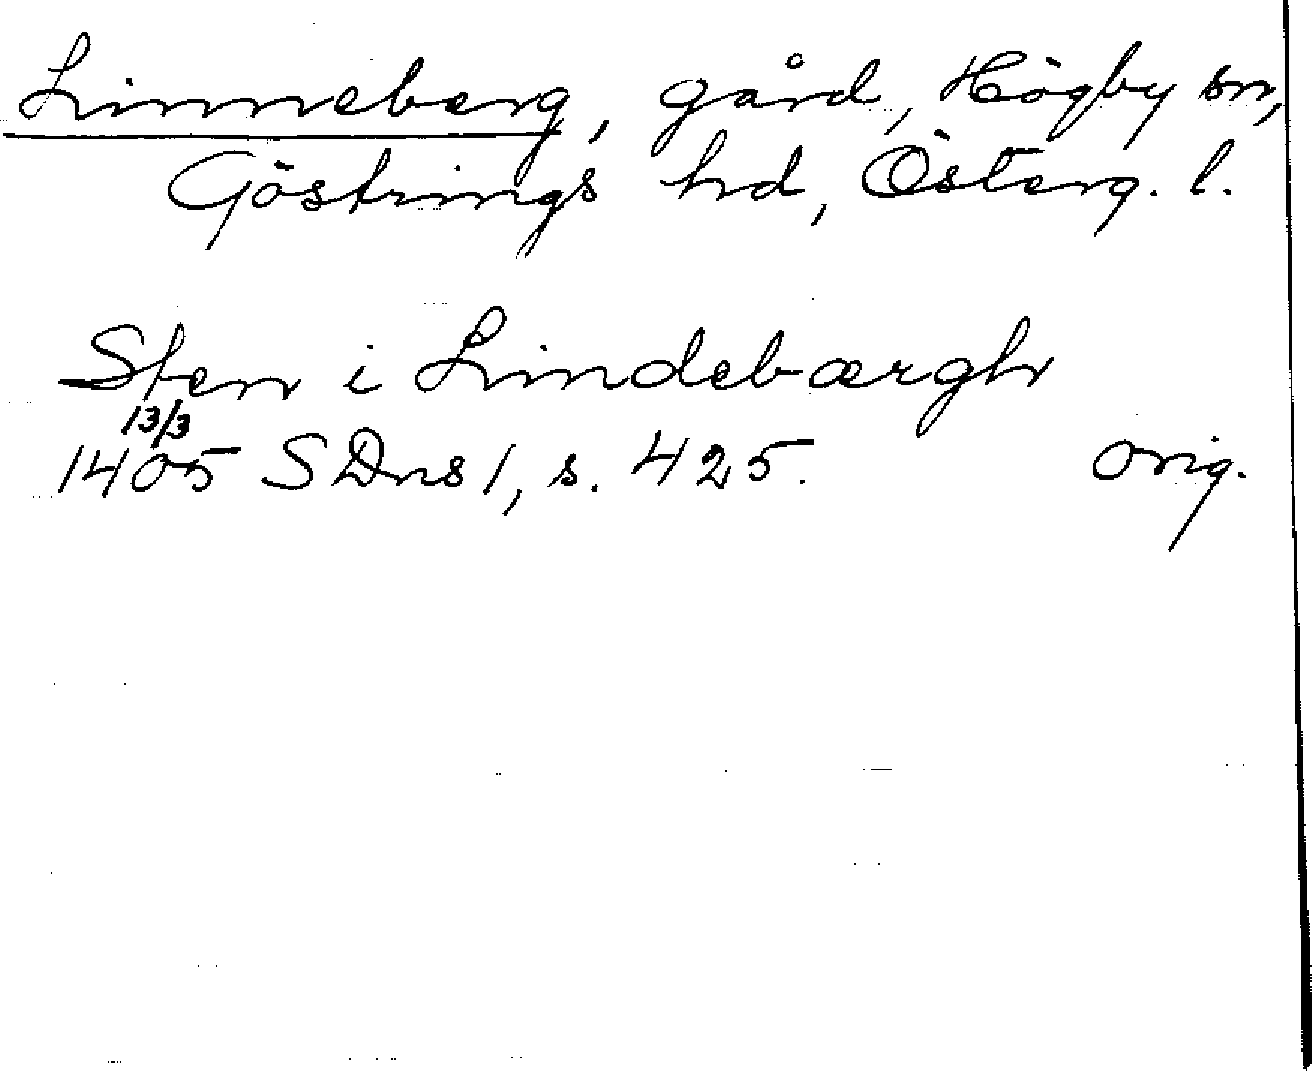 Linneberg, gård, Högby sn,
Göstrings hd, Österg. l.
Sten i Lindebærgh
13/3
1405 SDns 1, s. 425. Orig.